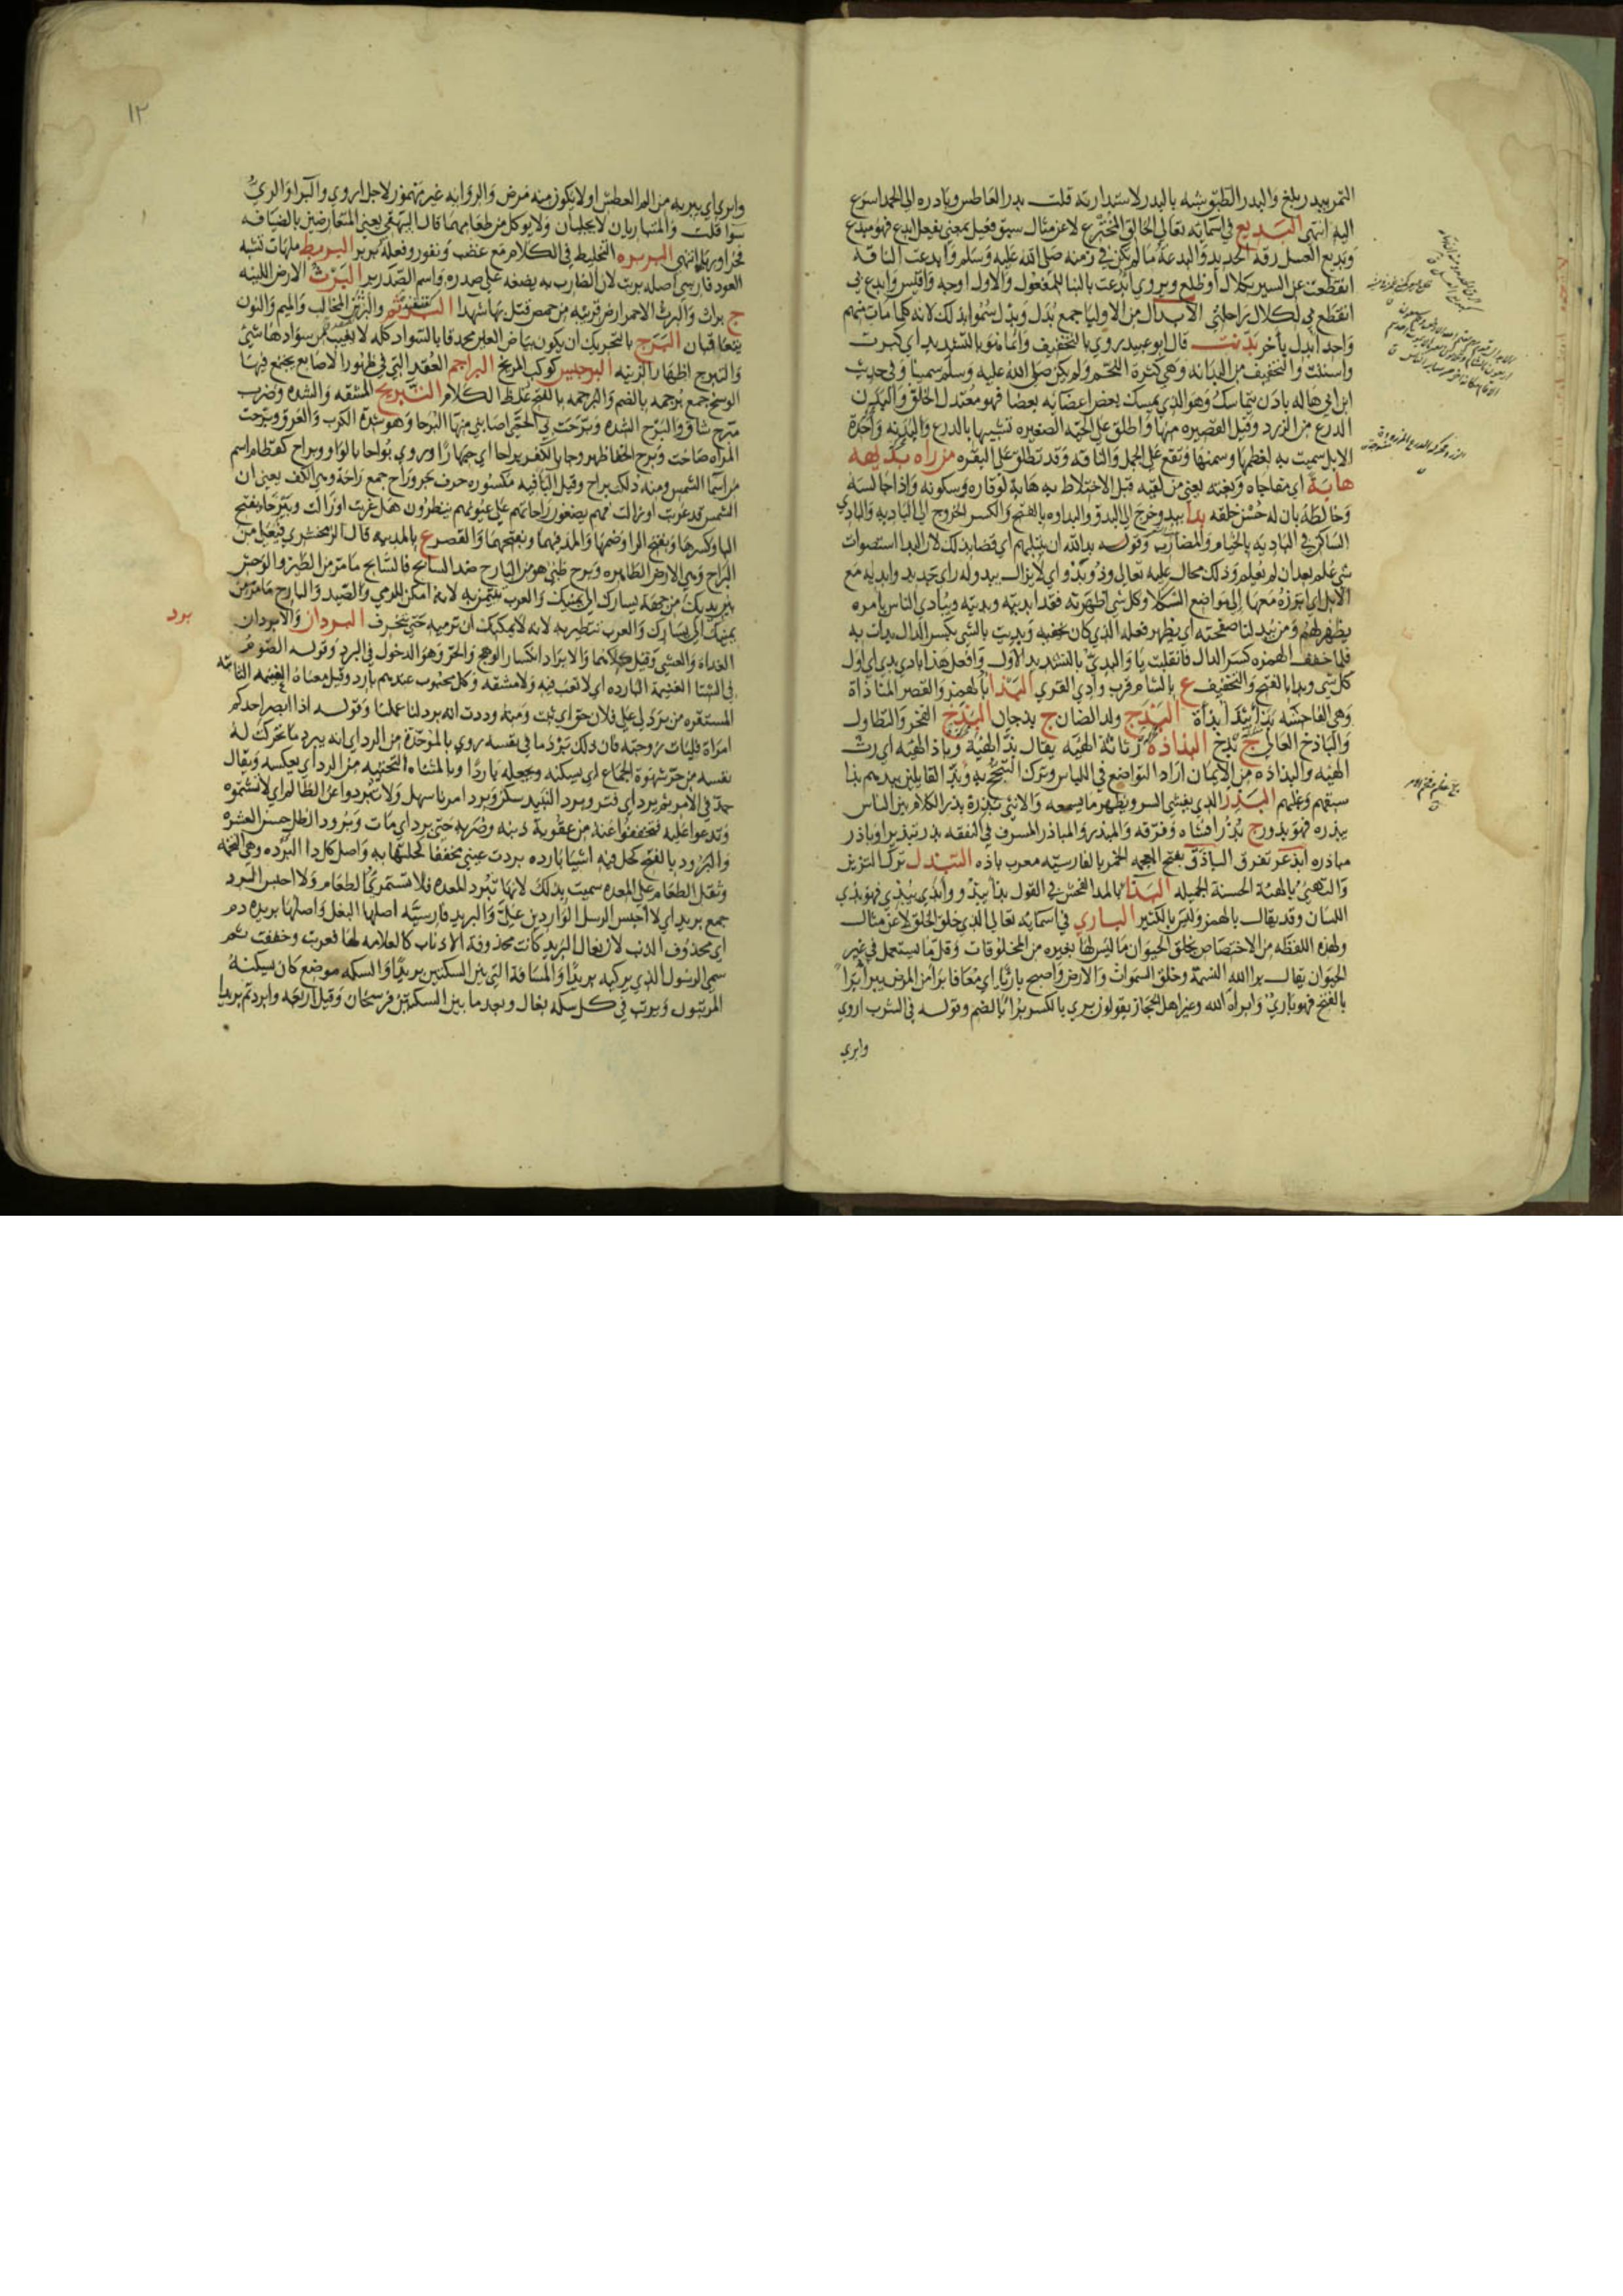 التمر بيدر بلغ والبدر الطبق شبه بالبدر لاستدارته قلت بدر العاطس وبادره الى الحمد اسرع
اليه انتهى البديع في اسمايه تعالى الخالق المخترع لا عن مثال سبق فعيل بمعنى يفعل ابدع فهو مبدع
وبديع العسل رقه الجديد والبدعة ما لم يكن في زمنه صلى الله عليه وسلم وابدعت الناقة
انقطعت عن السير بكلال او ظلع ويروي ابدعت بالبنا للمفعول والاول اوجه واقيس وابدع بي
انقطع بي لكلال راحلتي الابدال من الاوليا جمع بدل وبدل سموا بذلك لانه كلما مات منهم
واحد ابدل باخر بدنت قال ابو عبيد روي بالتخفيف وانما هو بالتشديد اي كبرت
واسننت والتخفيف من البدانه وهي كثرة اللحم ولم يكن صلى الله عليه وسلم سمينا وفي حديث
ابن ابي هاله بادن متماسك وهو الذي يمسك بعض اعضايه بعضا فهو معتدل الخلق والبدن
الدرع من الزرد وقيل القصيره منها واطلق على الجبه الصغيره تشبيها بالدرع والبدنه واحدة
الابل سميت به لعظمها وسمنها وتقع على الجمل والناقه وقد تطلق على البقره من راه بديهه
هابه اي مفاجاه وبغته يعني من لقيه قبل الاختلاط به هابه لوقاره وسكونه واذا جالسه
وخالطه بان له حسن خلقه بدا يبدو خرج الى البدو والبداوه بالفتح والكسر الخروج الى الباديه والبادي
الساكن في الباديه بالخيام والمضارب وقوله بدا لله ان يبتليهم اي قضا بذلك لان البدا استصواب
شي علم بعد ان لم يعلم وذلك محال عليه تعالى وذو بدوات اي لا يزال يبدو له راي جديد وابديه مع
الابل اي ابرزه معها الى مواضع الكلا وكل شي اظهرته فقد ابديته وبديته ويبادي الناس بامره
يظهره لهم ومن يبد لنا صفحته اي يظهر فعله الذي كان يخفيه وبديت بالشي بكسر الدال بدات به
فلما خفف الهمزه كسر الدال فانقلبت يا والبدي بالتشديد الاول وافعل هذا بادي بدي اي اول
كل شي وبدا بالفتح والتخفيف ع بالشام قرب وادي القرى البذا بالهمز والقصر المناذاة
وهي الفاحشه بذا يبذا بذاة البذج ولد الضان ج بذجان البذخ الفخر والتطاول
والباذخ العالي ج بذخ البذاذه رثاثة الهيه يقال بذ الهيه وباذ الهيه اي رث
الهيه والبذاذه من الايمان اراد التواضع في اللباس وترك التبجح به وبذ القايلين يبذهم بذا
سبقهم وغلبهم البذر الذي يفشي السر ويظهر ما يسمعه والانثى بذرة بذر الكلام بين الناس
يبذره فهو بذور ج بذر افشاه وفرقه والمبذر والمباذر المسرف في النفقه بذر تبذيرا وباذر
مباذره ابذعر تفرق الباذق بفتح المعجمه الخمر بالفارسيه معرب باذه التبذل ترك التزين
والتهيئ بالهيئة الحسنة الجميله البذا بالمد الفحش في القول بذا يبذو وابذي يبذي فهو بذي
اللسان وقد يقال بالهمز وليس بالكثير الباري في اسمايه تعالى الذي خلق الخلق لا عن مثال
ولهذه اللفظه من الاختصاص بخلق الحيوان ما ليس لها بغيره من المخلوقات وقل ما يستعمل في غير
الحيوان يقال برا الله النسمة وخلق السموات والارض واصبح باريا اي معافا برا من المرض يبرا برا
بالفتح فهو باري وابراه الله وغير اهل الحجاز يقولون بري بالكسر برا بالضم وقوله في الشرب اروي
وابري
١٢
وابري اي يبريه من الم العطش او لا يكون منه مرض والروايه غير مهموز لاجل اروي والبرا والبري
سوا قلت والمتباريان لا يجابان ولا يوكل من طعامهما قال البيهقي يعني المتعارضين بالضيافه
فخرا وريا انتهى البربره التخليط في الكلام مع غضب ونفور وفعله بربر البربط ملهات تشبه
العود فارسي اصله بربت لان الضارب به يضعه على صدره واسم الصدر بر البرث الارض اللينه
ج براث والبرث الاحمر ارض قريبه من حمص قتل بها شهدا البرثمه والبرثن المخالب والميم والنون
يتعاقبان البرج بالتحريك ان يكون بياض العين محدقا بالسواد كله لا يغيب من سوادها شي
والتبرج اظهار الزينه البرجيس كوكب المريخ البراجم العقد التي في ظهور الاصابع يجتمع فيها
الوسخ جمع برجمه بالضم والبرجمه بالفتح غلظ الكلام التبريح المشقه والشده وضرب
مبرح شاق والبرح الشده وبرحت بي الحمى اصابني منها البرحا وهو شدة الكرب والعرق وبرحت
المراه صاحت وبرح الخفا ظهر وجا بالكفر براحا اي جهارا وروي بواحا بالواو وبراح كقطام اسم
من اسما الشمس ومنه دلكت براح وقيل البا فيه مكسوره حرف جر وراح جمع راحة وهي الكف يعني ان
الشمس قد غربت او زالت فهم يضعون راحاتهم على عيونهم ينظرون هل غربت او زالت وبيرحا بفتح
البا وكسرها وبفتح الرا وضمها والمد فيهما وبفتحهما والقصر ع بالمدينه قال الزمخشري فيعلى من
البراح وهي الارض الظاهره وبرح ظبي هو من البارح ضد السانح فالسانح ما مر من الطير والوحش
بين يديك من جهة يسارك الى يمينك والعرب تتيمن به لانه امكن للرمي والصيد والبارح ما مر من
يمينك الى يسارك والعرب تتطير به لانه لا يمكنك ان ترميه حتى تنحرف البردان والابردان
الغداه والعشي وقيل ظلاهما والابراد انكسار الوهج والحر وهو الدخول في البرد وقوله الصوم
في الشتا الغنيمة البارده اي لا تعب فيه ولا مشقه وكل محبوب عندهم بارد وقيل معناه الغنيمه الثابته
المستقره من برد لي على فلان حق اي ثبت ومنه وددت انه برد لنا عملنا وقوله اذا ابصر احدكم
امراة فليات زوجته فان ذلك برد ما في نفسه روي بالموحدة من البرد اي انه يبرد ما تحركت له
نفسه من حر شهوة الجماع اي يسكنه ويجعله باردا وبالمثناه التحتيه من الرد اي يعكسه ويقال
جد في الامر ثم برد اي فتر وبرد النبيذ سكن وبرد امرنا سهل ولا تبردوا عن الظالم اي لا تشتموه
وتدعوا عليه فتخففوا عنه من عقوبة ذنبه وضربه حتى برد اي مات وبرود الظل حسن العشره
والبرود بالفتح كحل فيه اشيا بارده بردت عيني مخففا كحلتها به واصل كل دا البرده وهي التخمه
وثقل الطعام على المعده سميت بذلك لانها تبرد المعده فلا تستمرئ الطعام ولا احبس البرد
جمع بريد اي لا احبس الرسل الواردين علي والبريد فارسيه اصلها البغل واصلها بريده دم
اي محذوف الذنب لان بغال البريد كانت محذوفة الاذناب كالعلامه لها فعربت وخففت ثم
سمي الرسول الذي يركبه بريدا والمسافة التي بين السكتين بريدا والسكه موضع كان يسكنه
المرتبون ويرتب في كل سكه بغال وبعد ما بين السكتين فرسخان وقيل اربعه وابردتم بريدا
برد